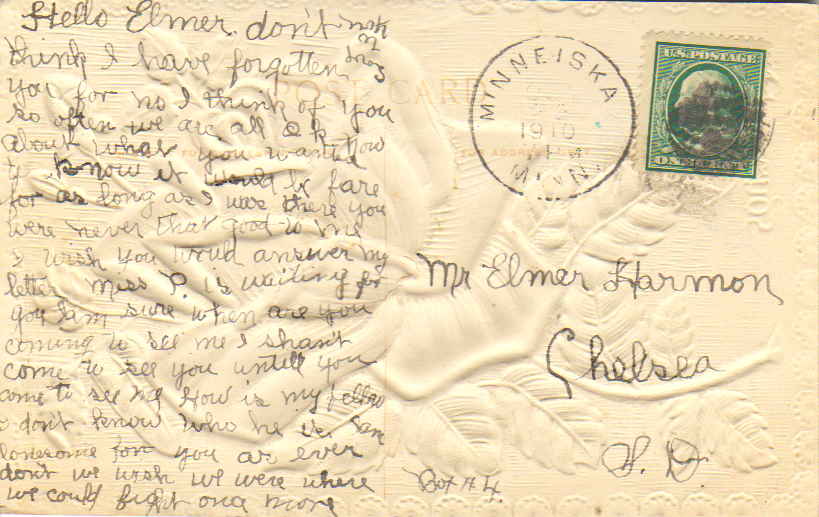 Hello Elmer don't
think I have forgotten
you for no I think of you
so often we are all O k
about what you wanted
to know it would be fare
for as long as I was there you
were never that good to me
I wish you would answer my
letter Miss P. is waiting for
you I am sure when are you
coming to see me I shan't
come to see you untill you
come to see me How is my fellow
I don't know who he is
lonesome for you as ever
don't we wish we were where
we could fight once more
POST CARD
MINNEISKA
1910
MINN.
U.S. POSTAGE
ONE CENT
Mr Elmer Harmon
Chelsea
S. D.
Box # 4.